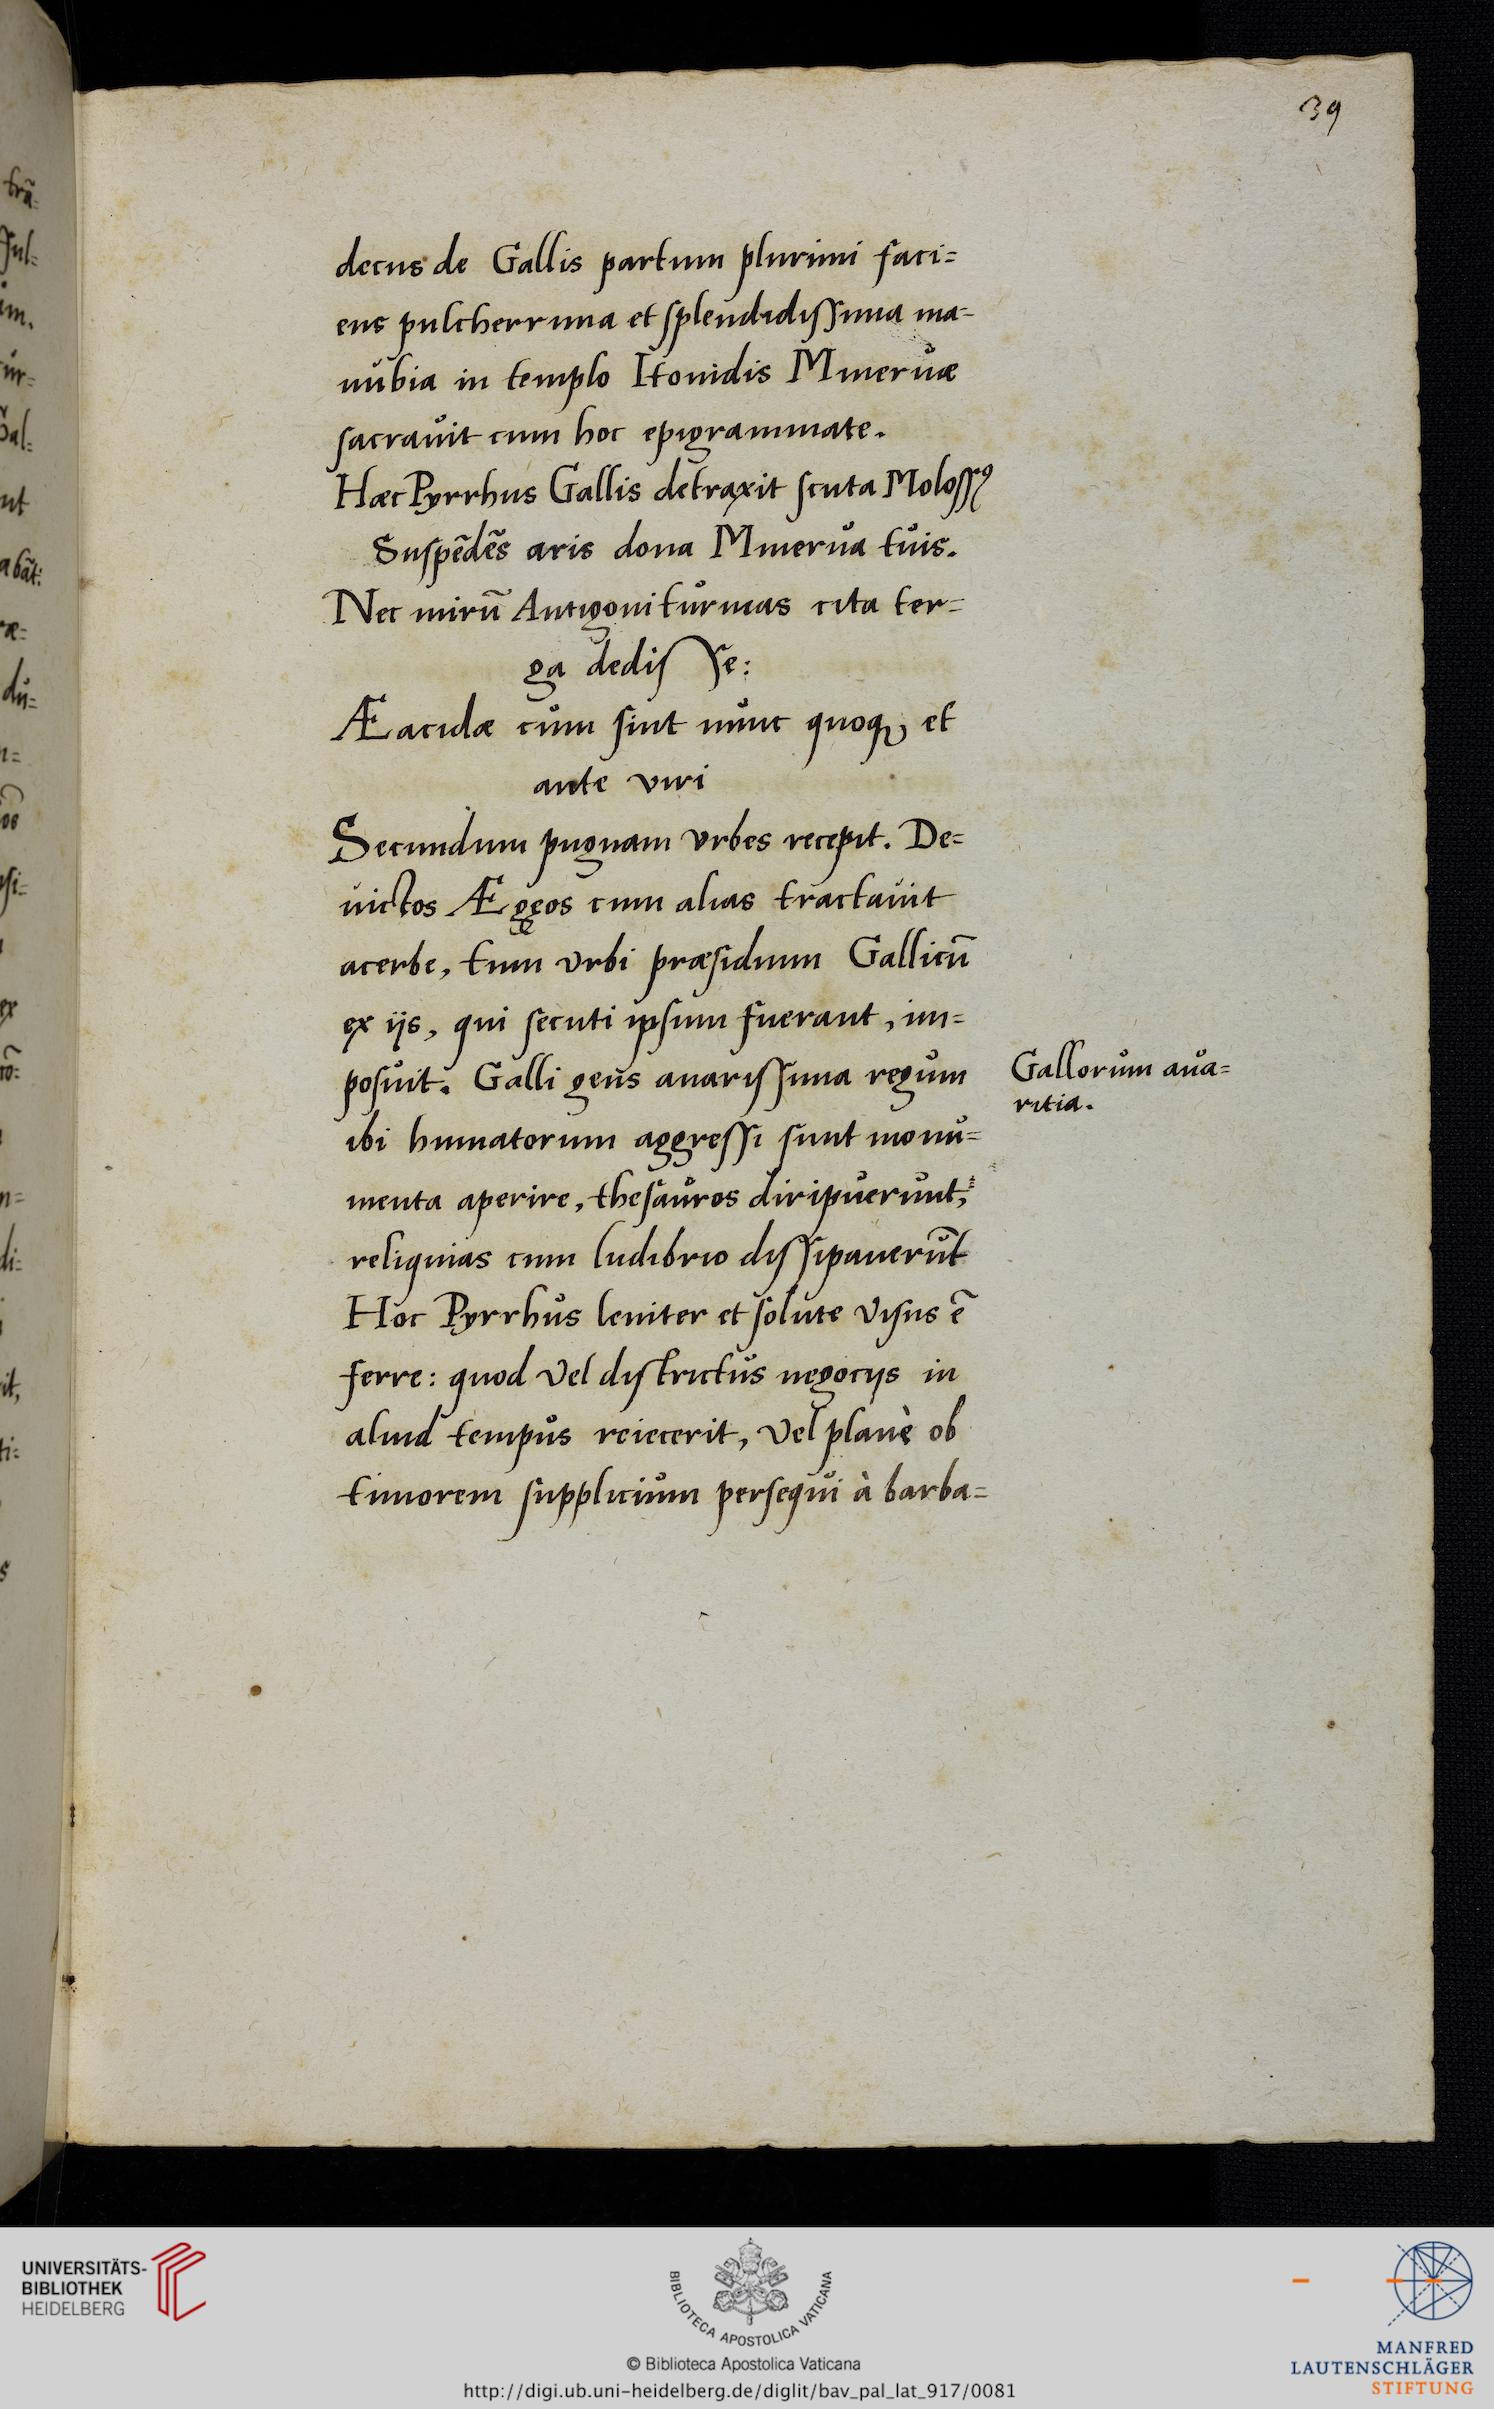 39
decus de Gallis partum plurimi faci=
ens pulcherrima et splendidissima ma=
nubia in templo Itonidis Minervæ
sacravit cum hoc epigrammate.
Hæc Pyrrhus Gallis detraxit scuta Molossꝰ
Suspēdēs aris dona Minerva tuis.
Nec mirū Antigoni turmas cita ter=
ga dedisse:
Æacidæ cum sint nunc quoqꝫ et
ante viri
Secundum pugnam vrbes recepit. De=
uictos Ægeos cum alias tractauit
acerbe, tum vrbi præsidium Gallicū
ex ijs, qui secuti ipsum fuerant, im=
posuit. Galli gens auarissima regum
ibi humatorum aggressi sunt monu=
menta aperire, thesauros diripuerunt,
reliquias cum ludibrio dissipauerūt
Hoc Pyrrhus leniter et solute visus ē
ferre: quod vel districtus negocijs in
aliud tempus reiecerit, vel planè ob
timorem supplicium persequi à barba=
Gallorum aua=
ritia.
UNIVERSITÄTS-
BIBLIOTHEK
HEIDELBERG
BIBLIOTECA APOSTOLICA VATICANA
© Biblioteca Apostolica Vaticana
http://digi.ub.uni-heidelberg.de/diglit/bav_pal_lat_917/0081
MANFRED
LAUTENSCHLÄGER
STIFTUNG